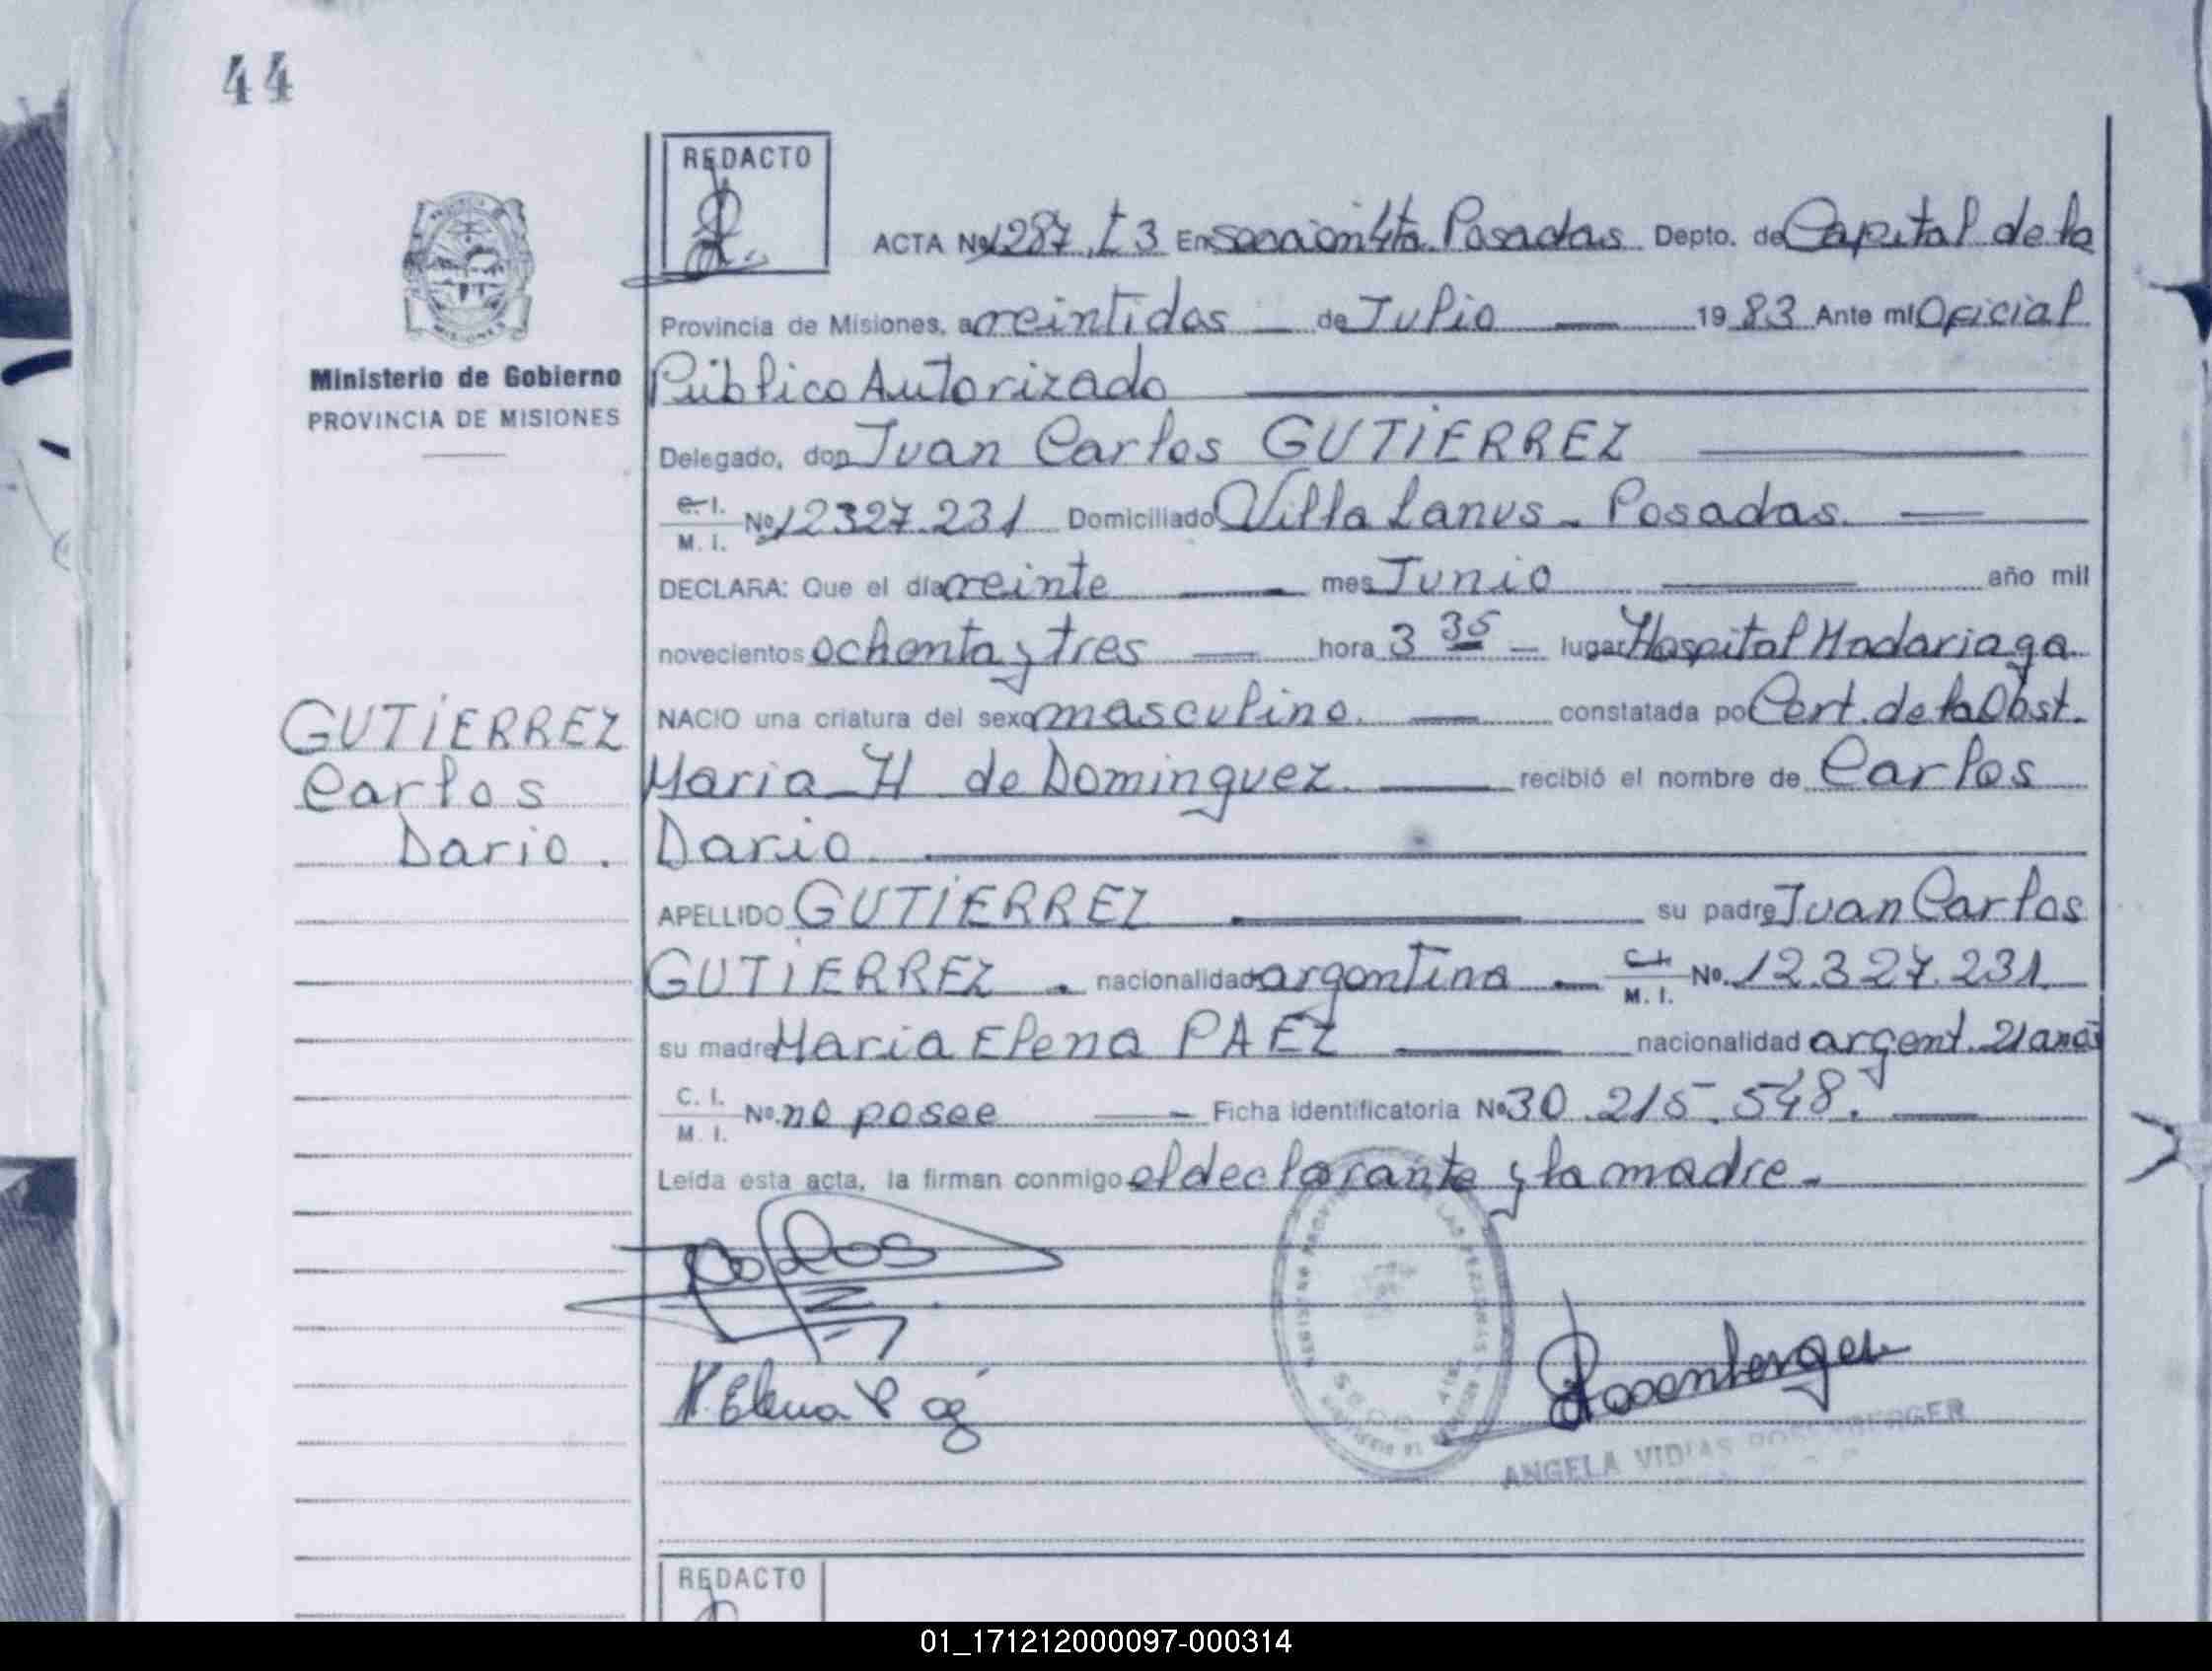 44
REDACTO
ACTA Nº 1287. t 3 En sección 4ta. Posadas Depto. de Capital de la
Provincia de Misiones, a veintidos — de Julio — 19 83 Ante mi Oficial
Ministerio de Gobierno
PROVINCIA DE MISIONES
Público Autorizado
Delegado, don Juan Carlos GUTIERREZ
C. I. M. I. Nº 12327.231 Domiciliado Villa Lanus - Posadas. —
DECLARA: Que el día veinte — mes Junio — año mil
novecientos ochenta y tres — hora 3 35 — lugar Hospital Madariaga
NACIO una criatura del sexo masculino. — constatada por Cert. de la Obst.
GUTIERREZ
Carlos
Dario.
Maria H de Dominguez. — recibió el nombre de Carlos
Dario
APELLIDO GUTIERREZ — su padre Juan Carlos
GUTIERREZ . nacionalidad argentina - C. I. M. I. Nº 12.327.231
su madre Maria Elena PAEZ — nacionalidad argent. 21 años
C. I. M. I. Nº no posee — Ficha identificatoria Nº 30.215.548. —
Leída esta acta, la firman conmigo el declarante y la madre.
M. Elena
Rosenberger
ANGELA ROSENBERGER
REDACTO
01_171212000097-000314